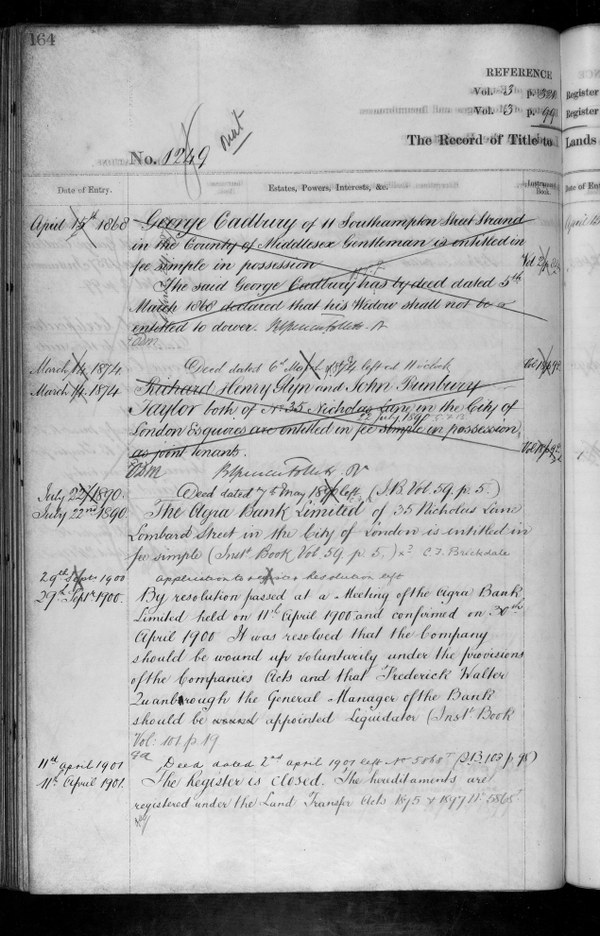 164
REFERENCE
Vol. 3 p.
Vol. 3 p. 99
The Record of Title to Lands
Register
Register
No. 1249
Date of Entry.
Estates, Powers, Interests, &c.
Instrument Book.
Date of Ent
April 15th 1868 George Cadbury of 11 Southampton Street Strand
in the County of Middlesex Gentleman is entitled in
fee simple in possession
The said George Cadbury has by deed dated 5th
March 1868 declared that his Widow shall not be
entitled to dower.
March 14, 1874 Deed dated 6th March 1874 left at 11 oclock
March 14. 1874 Richard Henry Glyn and John Bunbury
Taylor both of No 35 Nicholas Lane in the City of
London Esquires are entitled in fee simple in possession,
as joint tenants.
July 22/1890. Deed dated 7th May 1890 left, (I.B. Vol. 59. p. 5.)
July 22nd 1890 The Agra Bank Limited of 35 Nicholas Lane
Lombard Street in the City of London is entitled in
fee simple (Inst. Book Vol. 59. p. 5.) C. F. Brickdale
29th Sept. 1900 application to register Resolution left
29th Septr. 1900. By resolution passed at a Meeting of the Agra Bank
Limited held on 11th April 1900 and confirmed on 30th
April 1900 It was resolved that the Company
should be wound up voluntarily under the provisions
of the Companies Acts and that Frederick Walter
Quanbrough the General Manager of the Bank
should be wound appointed Liquidator (Inst. Book
Vol: 101 p. 19
11th April 1901 Deed dated 2nd April 1901 left No 5868 (I.B. 103 p. 98)
11th April 1901. The Register is closed. The hereditaments are
registered under the Land Transfer Acts 1875 & 1897 No 5868